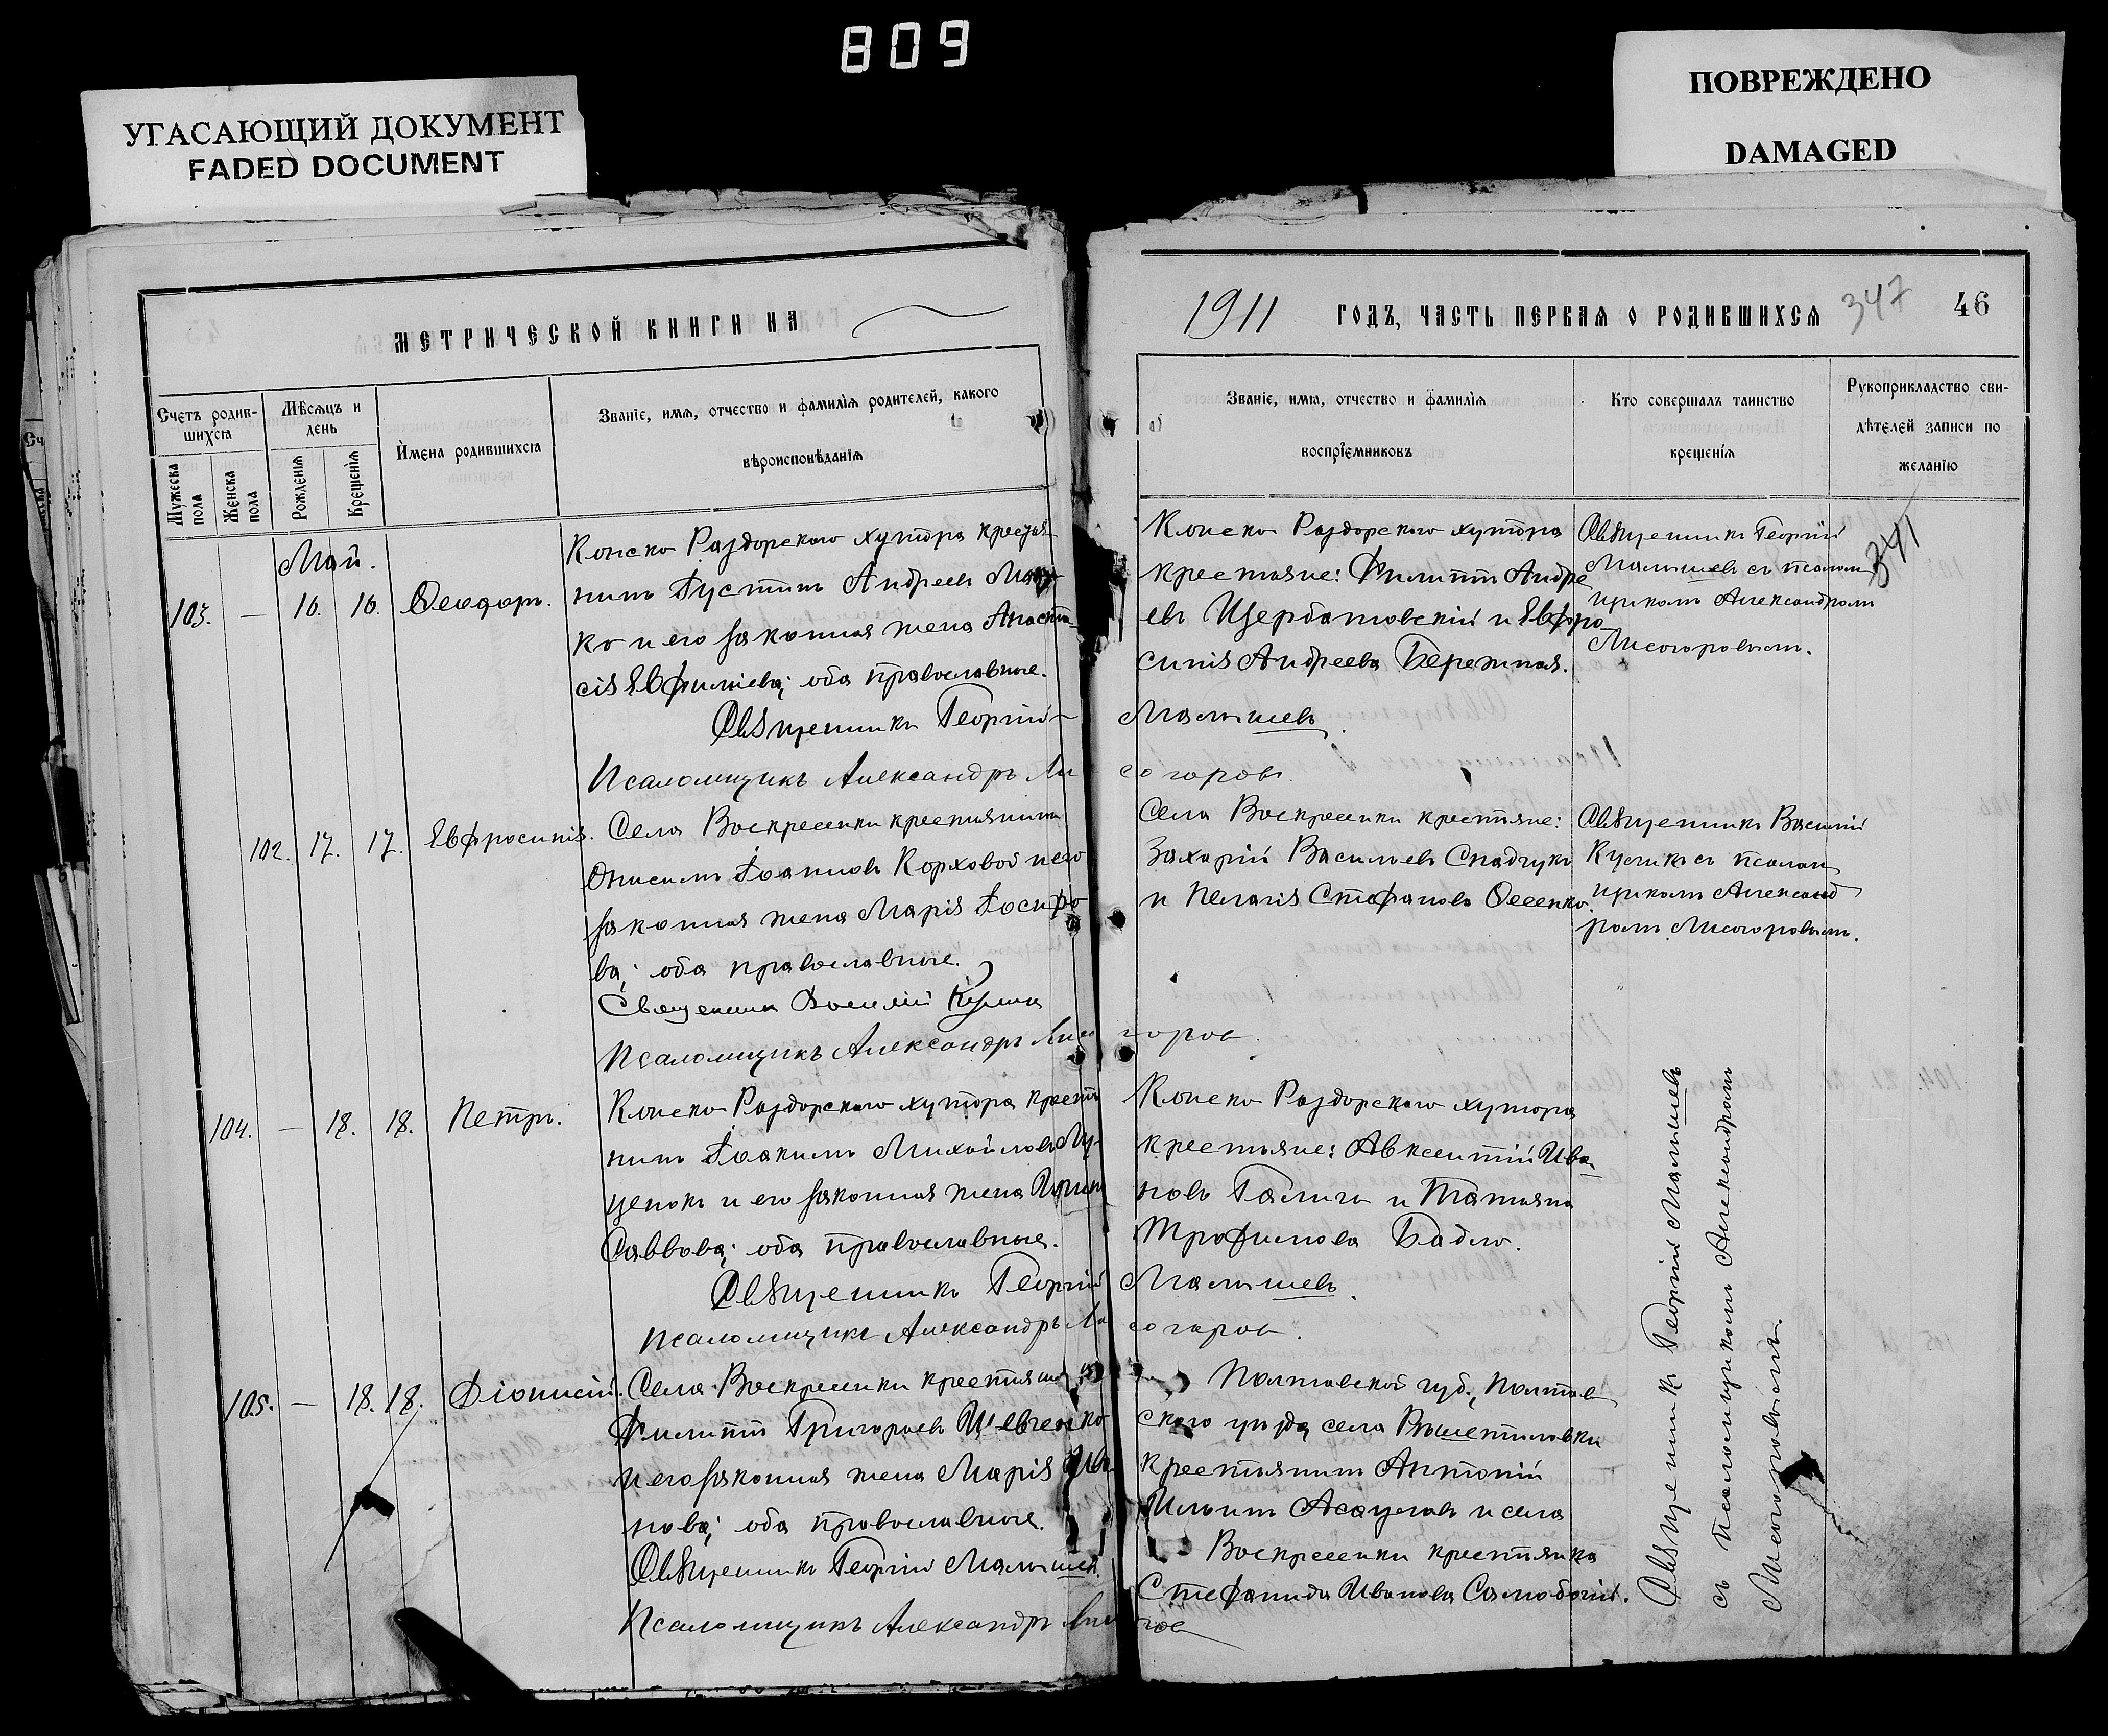 809
УГАСАЮЩИЙ ДОКУМЕНТ
FADED DOCUMENT
ПОВРЕЖДЕНО
DAMAGED
МЕТРИЧЕСКОЙ КНИГИ НА
1911 ГОДЪ, ЧАСТЬ ПЕРВАЯ О РОДИВШИХСЯ 347 46
Счетъ родив-
шихся
Мужеска
пола
Женска
пола
Мѣсяцъ и
день
Рожденія
Крещенія
Имена родившихся
Званіе, имя, отчество и фамилія родителей, какого
вѣроисповѣданія
Званіе, имя, отчество и фамилія
воспріемниковъ
Кто совершалъ таинство
крещенія
Рукоприкладство сви-
дѣтелей записи по
желанію
Май.
103. — 16. 16. Ѳеодоръ.
Конско Раздорскаго хутора крестья-
нинъ Іустинъ Андреевъ
ко и его законная жена Анаста-
сія Евфиміева; оба православные.
Священникъ Георгій
Псаломщикъ Александръ Ли
Конско Раздорскаго хутора
крестьяне: Филиппъ Андре
евъ Щербатовскій и Евфро
синія Андреева Бережная.
Малышевъ
согоровъ.
Священникъ Георгій
Малышевъ съ псалом
щикомъ Александромъ
Лисогоровымъ.
341
102. 17. 17. Евфросинія.
Села Воскресенки крестьянинъ
Онисимъ Іоанновъ Корховой и его
законная жена Марія Іосифо
ва; оба православные.
Священникъ Василій
Псаломщикъ Александръ Лисо
Села Воскресенки крестьяне:
Захарій Васильевъ Снадчукъ
и Пелагія Стефанова Овсенко.
горовъ.
Священникъ Василій
съ псалом
щикомъ Александ
ромъ Лисогоровымъ.
104. — 18. 18. Петръ.
Конско Раздорскаго хутора крестья
нинъ Іоакимъ Михайловъ Лу-
ценокъ и его законная жена Ирина
Саввова; оба православные.
Священникъ Георгій
Псаломщикъ Александръ Ли
Конско Раздорскаго хутора
крестьяне: Авксентій Ива
новъ Галичъ и Татьяна
Трофимова Бадло.
Малышевъ.
согоровъ.
105. — 18. 18. Діонисій.
Села Воскресенки крестьянинъ
Филиппъ Григорьевъ Шевченко
и его законная жена Марія Ива
нова; оба православные.
Священникъ Георгій Малышевъ
Псаломщикъ Александръ Лисо
Полтавской губ., Полтав
скаго уѣзда, села
крестьянинъ Антоній
Ильинъ Асауловъ и села
Воскресенки крестьянка
Стефанида Иванова
горов
Священникъ Георгій Малышевъ
съ псаломщикомъ Александромъ
Лисогоровымъ.